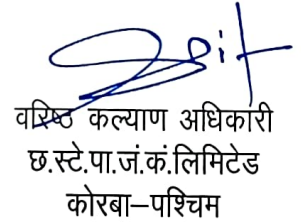 वरिष्ठ कल्याण अधिकारी
छ.स्टे.पा.जं.कं.लिमिटेड
कोरबा–पश्चिम